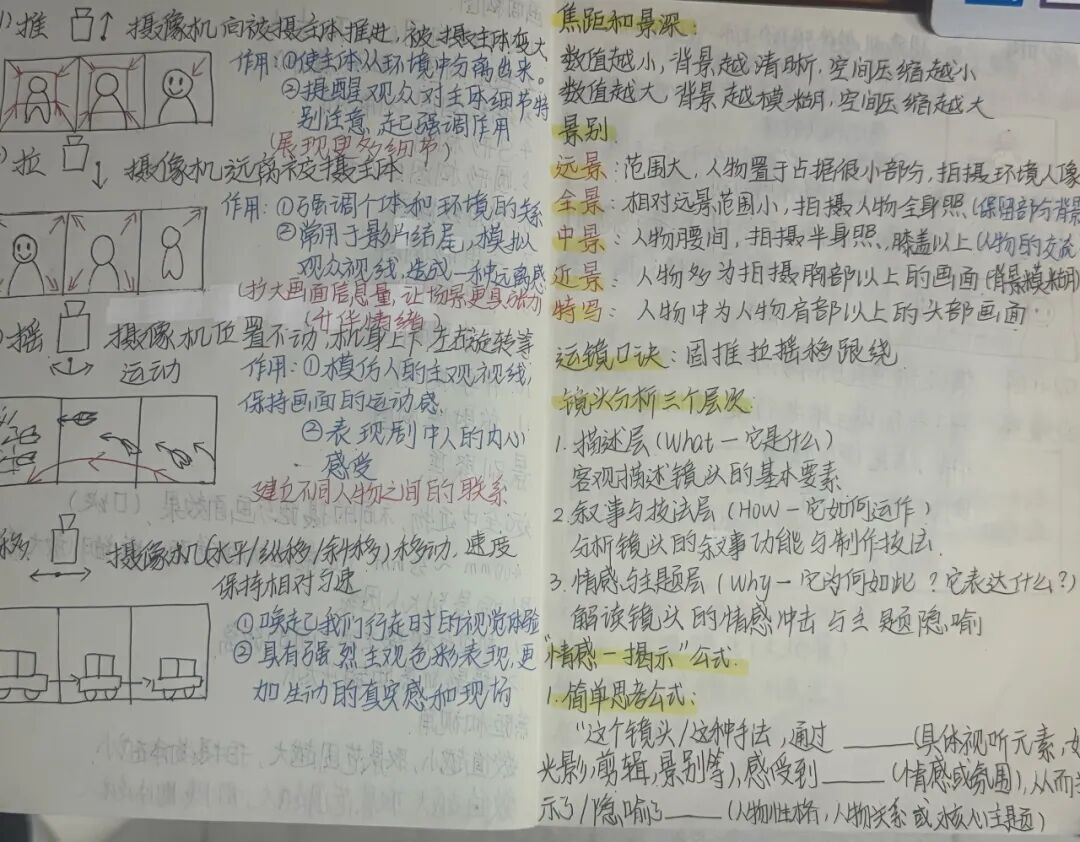 推 摄像机向被摄主体推进,被摄主体变大
作用:①使主体从环境中分离出来。
②提醒观众对主体细节特
别注意,起强调作用
(展现更多细节)
拉 摄像机远离被摄主体
作用:①强调个体和环境的关系
②常用于影片结尾,模拟
观众视线,造成一种远离感
(扩大画面信息量,让场景更具
(升华情绪)
摇 摄像机位置不动,机身上下,左右旋转等
运动
作用:①模仿人的主观视线,
保持画面的运动感.
②表现剧中人的内心
感受
建立不同人物之间的联系
移, 摄像机(水平/纵移/斜移)移动.速度
保持相对匀速
①唤起我们行走时的视觉体验
②具有强烈主观色彩表现,更
加生动的真实感和现场
焦距和景深:
数值越小,背景越清晰,空间压缩越小
数值越大,背景越模糊,空间压缩越大
景别
远景:范围大,人物置于占据很小部分,拍摄环境人像
全景:相对远景范围小,拍摄人物全身照(保留部分背景
中景:人物腰间,拍摄半身照,膝盖以上(人物的交流
近景:人物多为拍摄胸部以上的画面(背景模糊)
特写:人物中为人物肩部以上的头部画面.
运镜口诀:固推拉摇移跟绕
镜头分析三个层次
1.描述层(What-它是什么)
客观描述镜头的基本要素
2.叙事与技法层(How-它如何运作)
分析镜头的叙事功能与制作技法.
3.情感与主题层(Why-它为何如此?它表达什么?)
解读镜头的情感冲击与主题隐喻
"情感-揭示"公式.
1.简单思考公式:
"这个镜头/这种手法,通过____(具体视听元素,如
光影,剪辑,景别等),感受到____(情感或氛围),从而
示了/隐喻了____(人物性格,人物关系或核心主题)